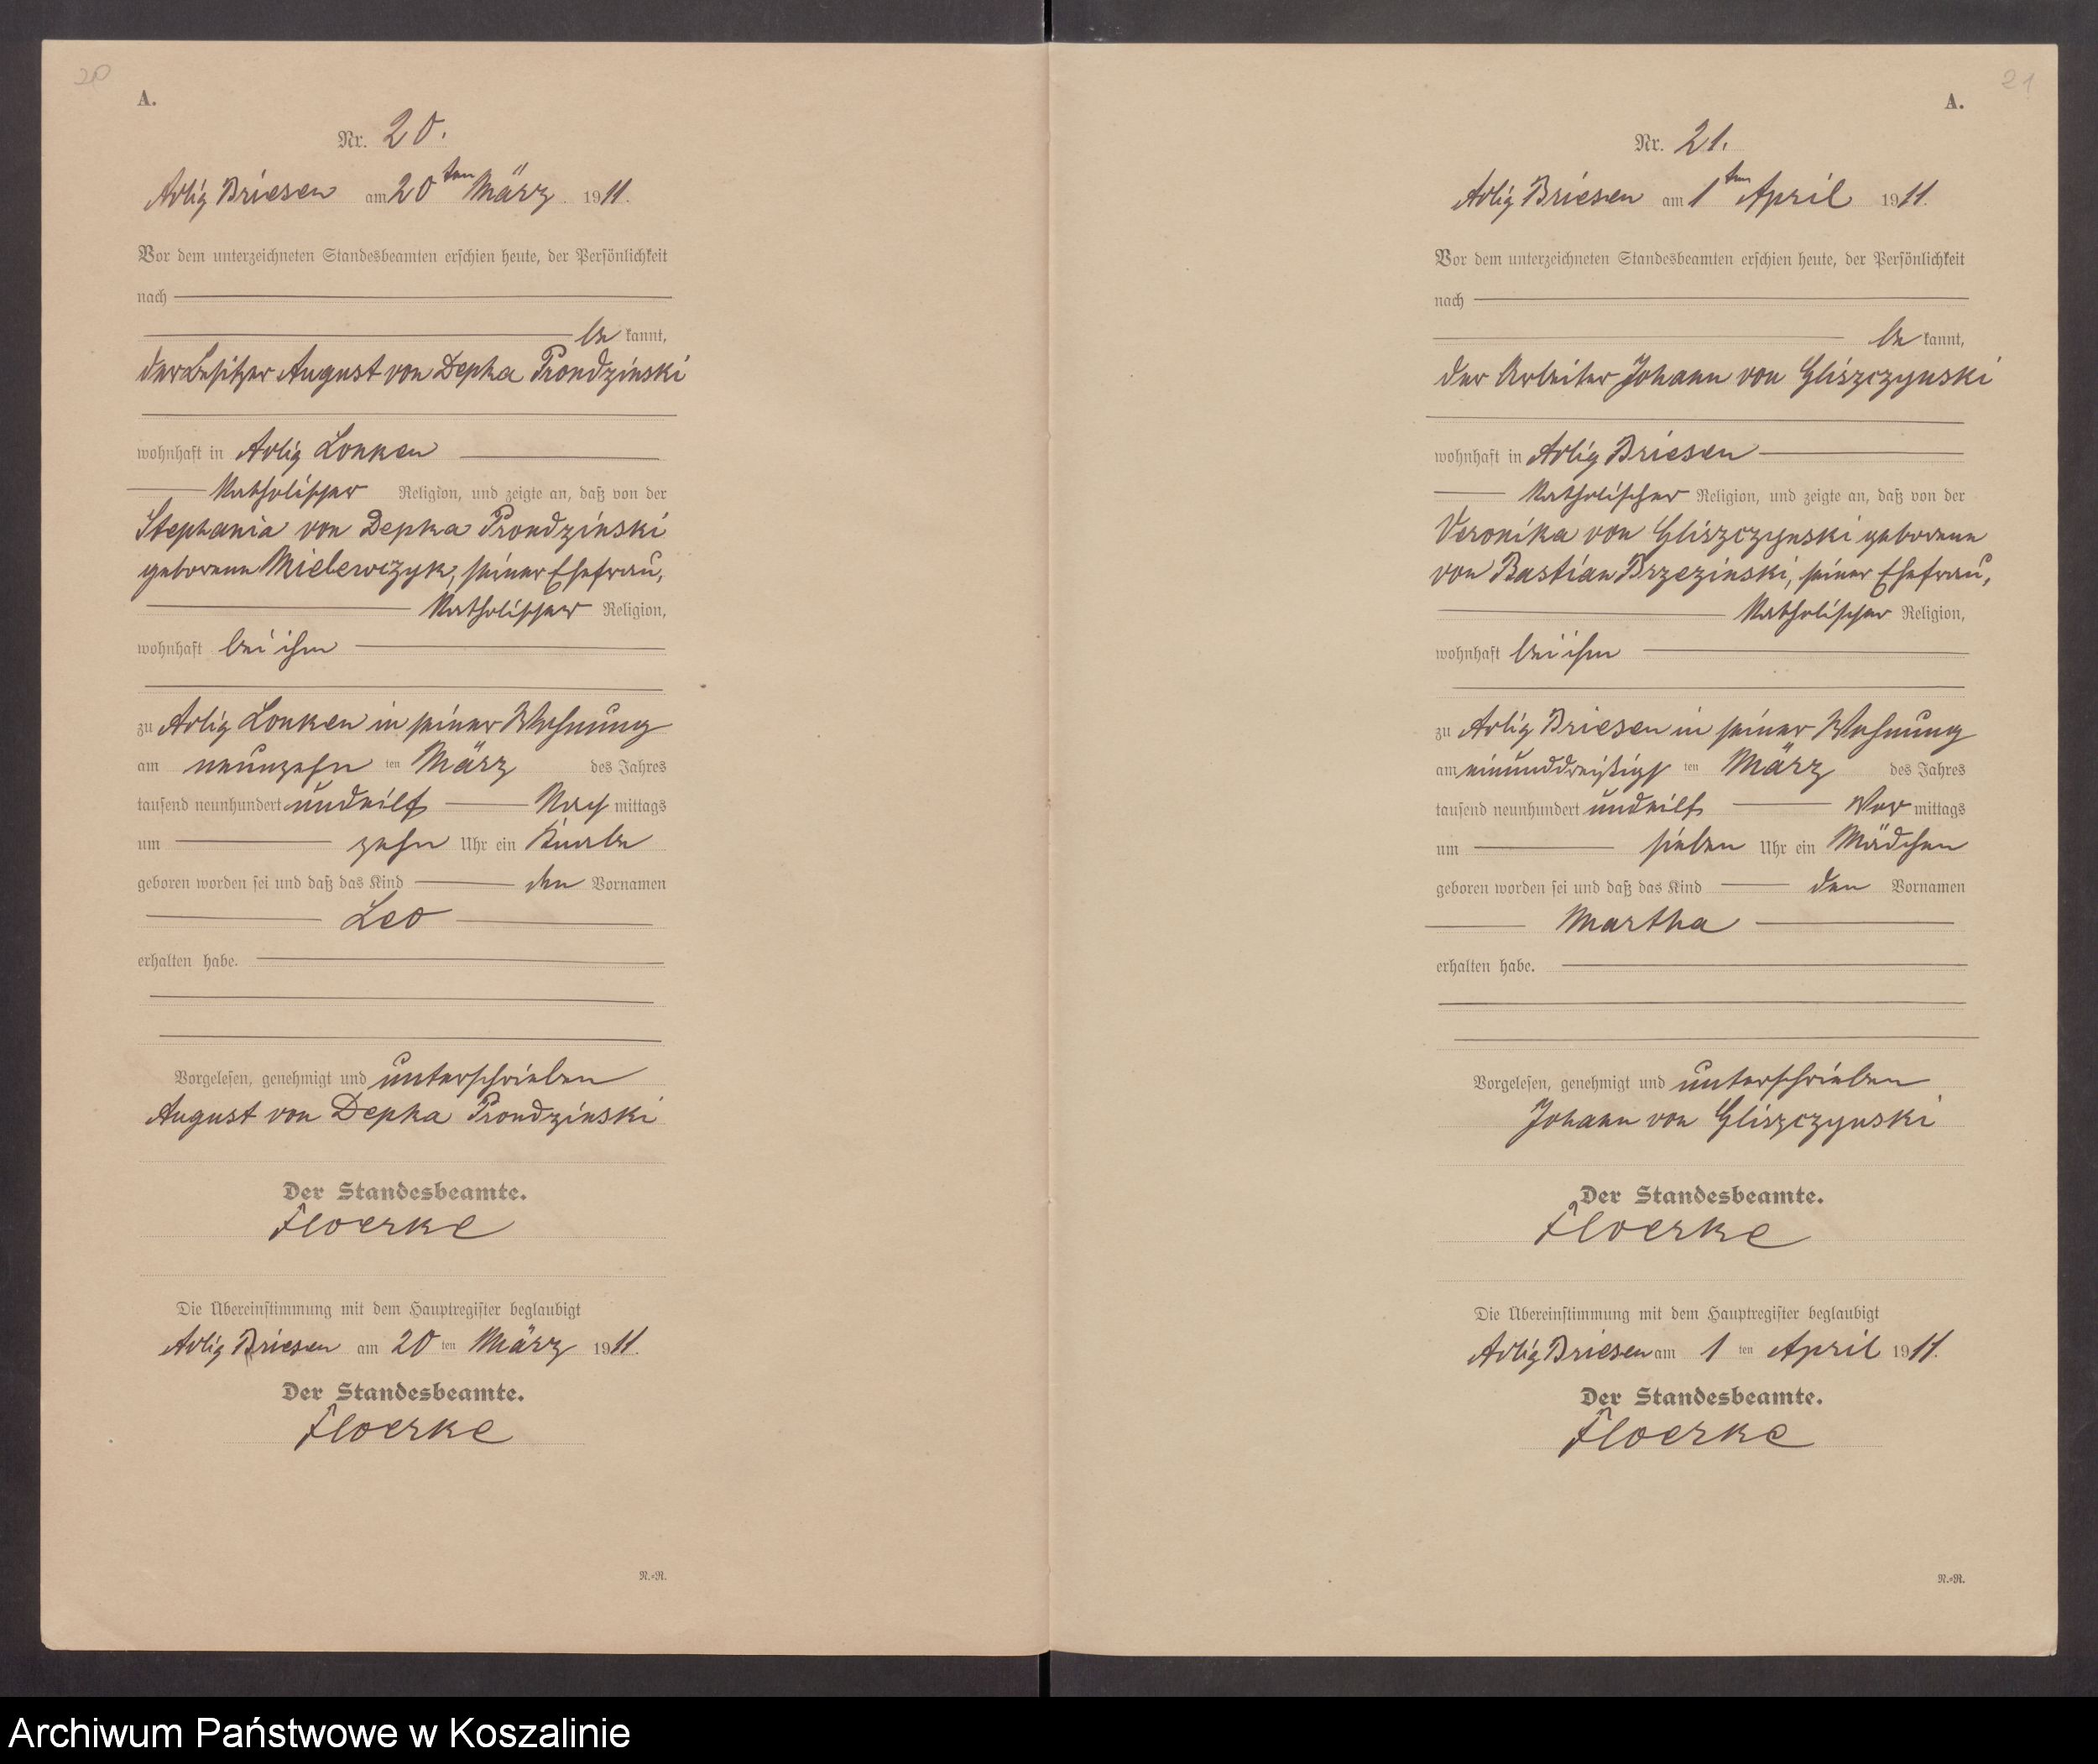 20
A.
Nr. 20.
Adlig Briesen am 20ten März 1911.
Vor dem unterzeichneten Standesbeamten erschien heute, der Persönlichkeit
nach
be kannt,
der Besitzer August von Depka Prondzinski
wohnhaft in Adlig Lonken
katholischer Religion, und zeigte an, daß von der
Stephania von Depka Prondzinski
geborenen Mielewczyk, seiner Ehefrau,
katholischer Religion,
wohnhaft bei ihm
zu Adlig Lonken in seiner Wohnung
am neunzehn ten März des Jahres
tausend neunhundert undeilf Nach mittags
um zehn Uhr ein Knabe
geboren worden sei und daß das Kind den Vornamen
Leo
erhalten habe.
Vorgelesen, genehmigt und unterschrieben
August von Depka Prondzinski
Der Standesbeamte.
Floerke
Die Übereinstimmung mit dem Hauptregister beglaubigt
Adlig Briesen am 20 ten März 1911.
Der Standesbeamte.
Floerke
N.=N.
21
A.
Nr. 21.
Adlig Briesen am 1ten April 1911.
Vor dem unterzeichneten Standesbeamten erschien heute, der Persönlichkeit
nach
be kannt,
der Arbeiter Johann von Gliszczynski
wohnhaft in Adlig Briesen
katholischer Religion, und zeigte an, daß von der
Veronika von Gliszczynski geborenen
von Bastian Brzezinski, seiner Ehefrau,
katholischer Religion,
wohnhaft bei ihm
zu Adlig Briesen in seiner Wohnung
am einunddreißigs ten März des Jahres
tausend neunhundert undeilf Vor mittags
um sieben Uhr ein Mädchen
geboren worden sei und daß das Kind den Vornamen
Martha
erhalten habe.
Vorgelesen, genehmigt und unterschrieben
Johann von Gliszczynski
Der Standesbeamte.
Floerke
Die Übereinstimmung mit dem Hauptregister beglaubigt
Adlig Briesen am 1 ten April 1911.
Der Standesbeamte.
Floerke
N.=N.
Archiwum Państwowe w Koszalinie